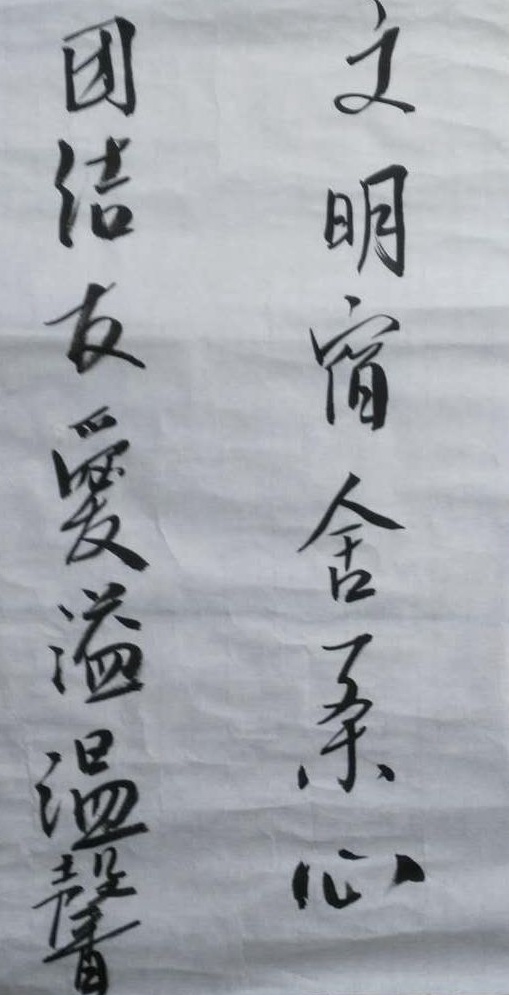 文明宿舍心
团结友愛溢温馨